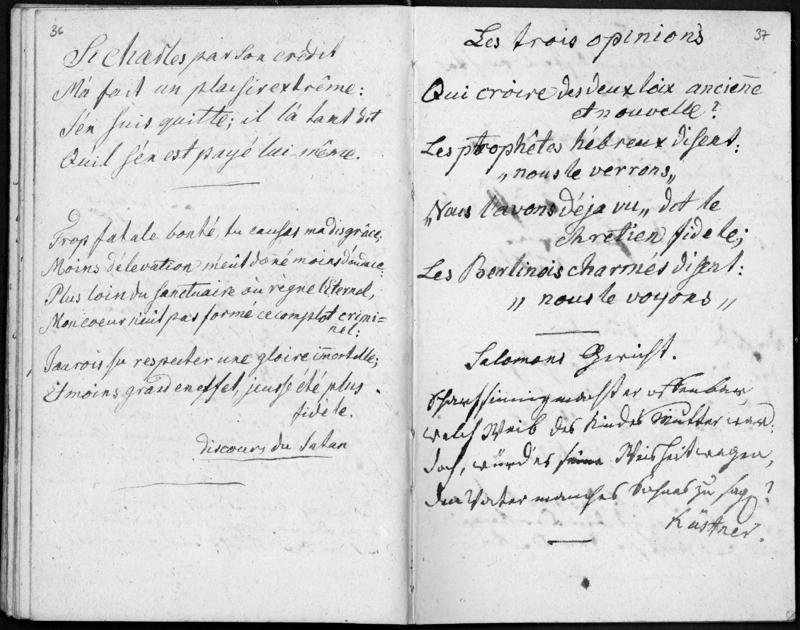 36
Si charles par son crédit
M'a fait un plaisir extrême:
J'en suis quitte; il l'a tant dit
Qu'il s'en est payé lui même.
Trop fatale bonté, tu causas ma disgrâce;
Moins d'élevation m'eût doné moins d'audace
Plus loin du sanctuaire où règne l'Eternel,
Mon coeur n'eût pas formé ce complot crimi=
nel:
J'aurois su respecter une gloire immortelle;
Et moins grand en effet, j'eusse été plus
fidèle.
discours du Satan
37
Les trois opinions
Qui croire des deux loix ancieñe
et nouvelle?
Les prophêtes hébreux disent:
„nous le verrons„
„Nous l'avons déja vu„ dit le
Chretien fidele;
Les Berlinois charmés disent:
„ nous le voyons „
Salomons Gericht.
Scharfsinnig macht er offenbar
welch Weib des Kindes Mutter war.
doch, würd es seine Weisheit wagen,
den Vater manches Sohnes zu sagen?
Kästner.